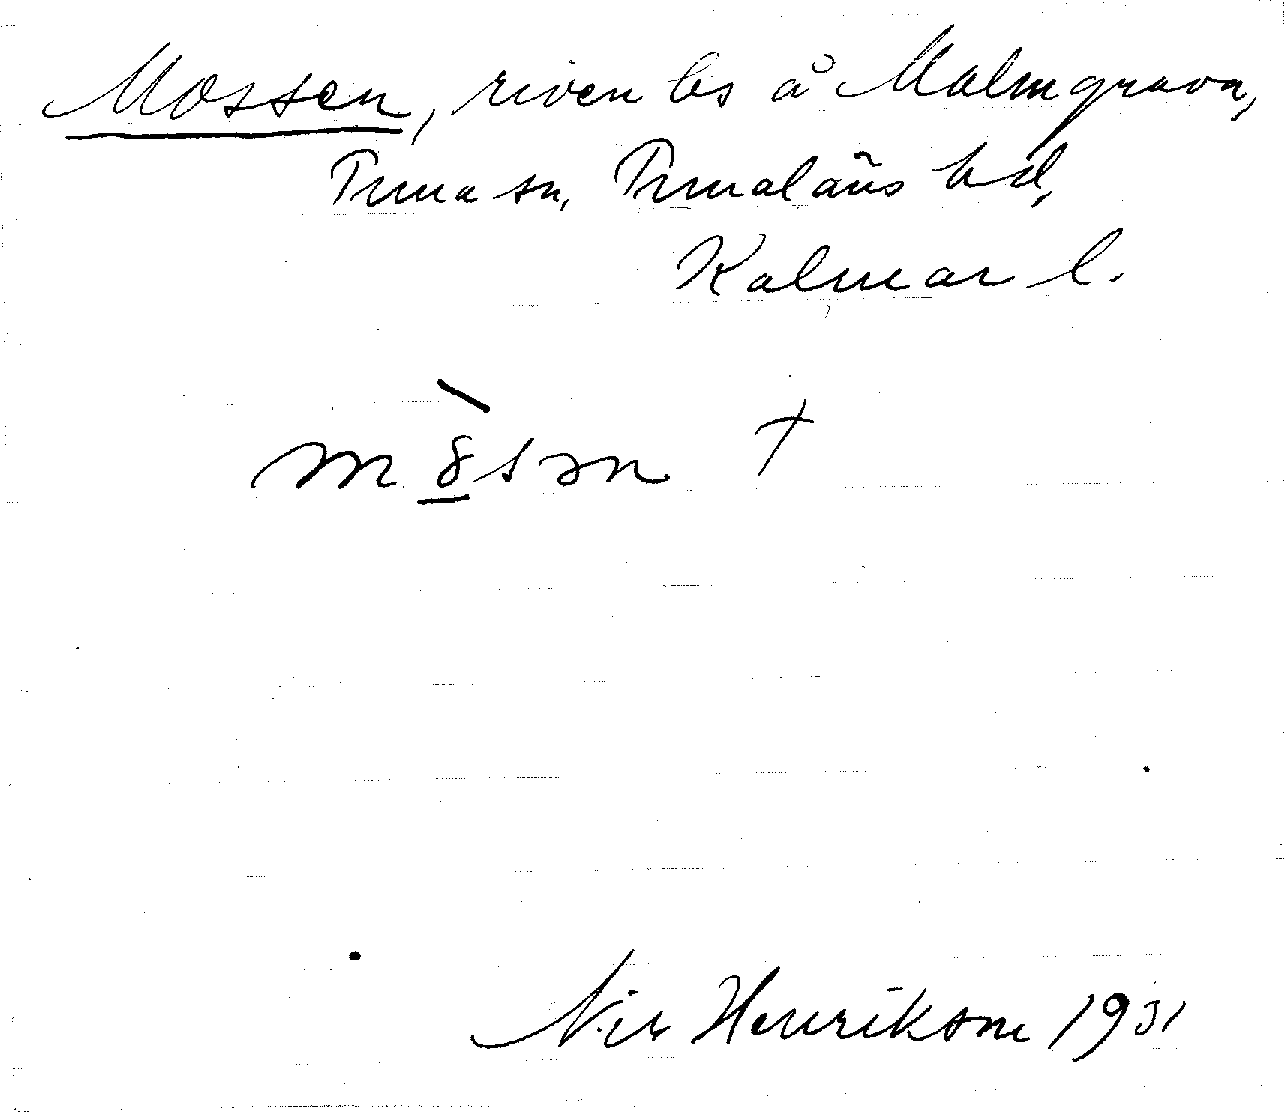 Mossen, riven bs å Malmgrava,
Tuna sn, Tunaläns hd,
Kalmar l.
Nils Henrikson 1931